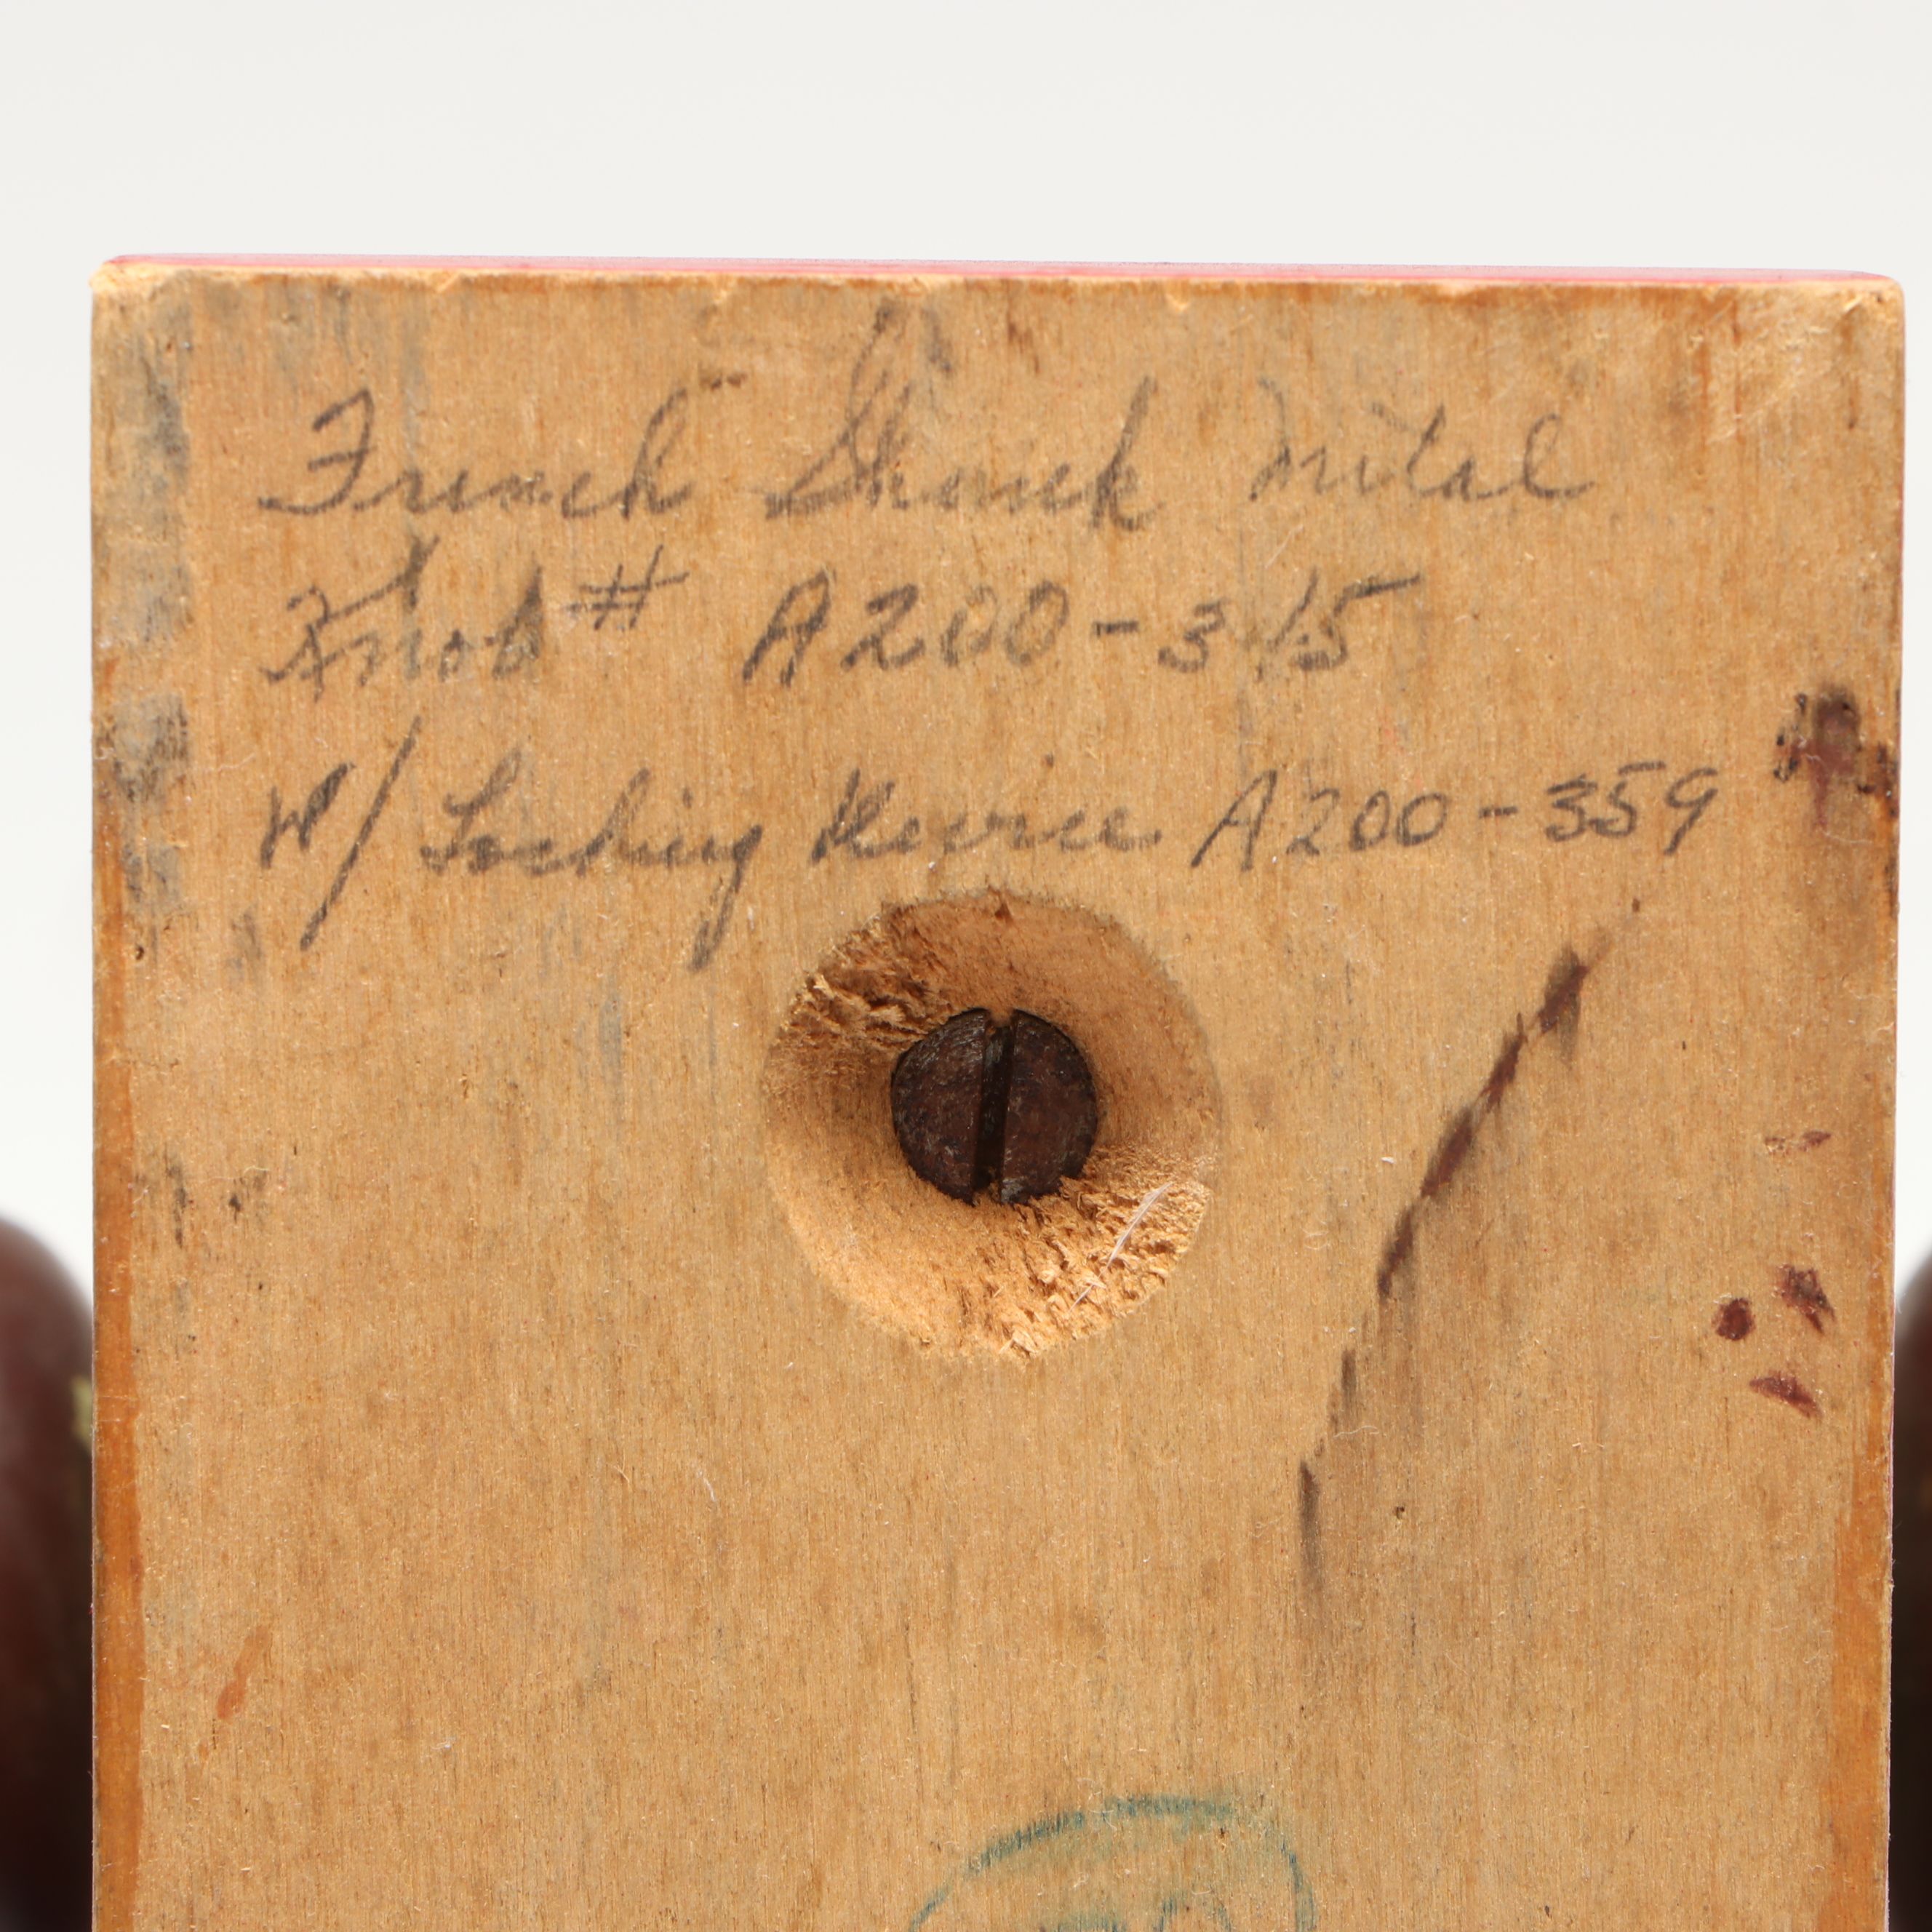 French Shank Metal
Knob # A200-315
W/ Locking Device A200-359